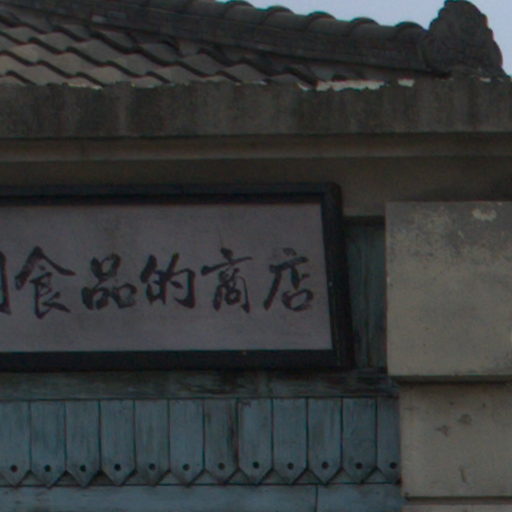 食品的商店